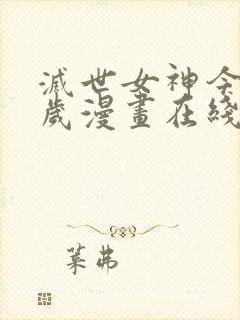 滅世女神今
歲漫畫在綫
葉弗